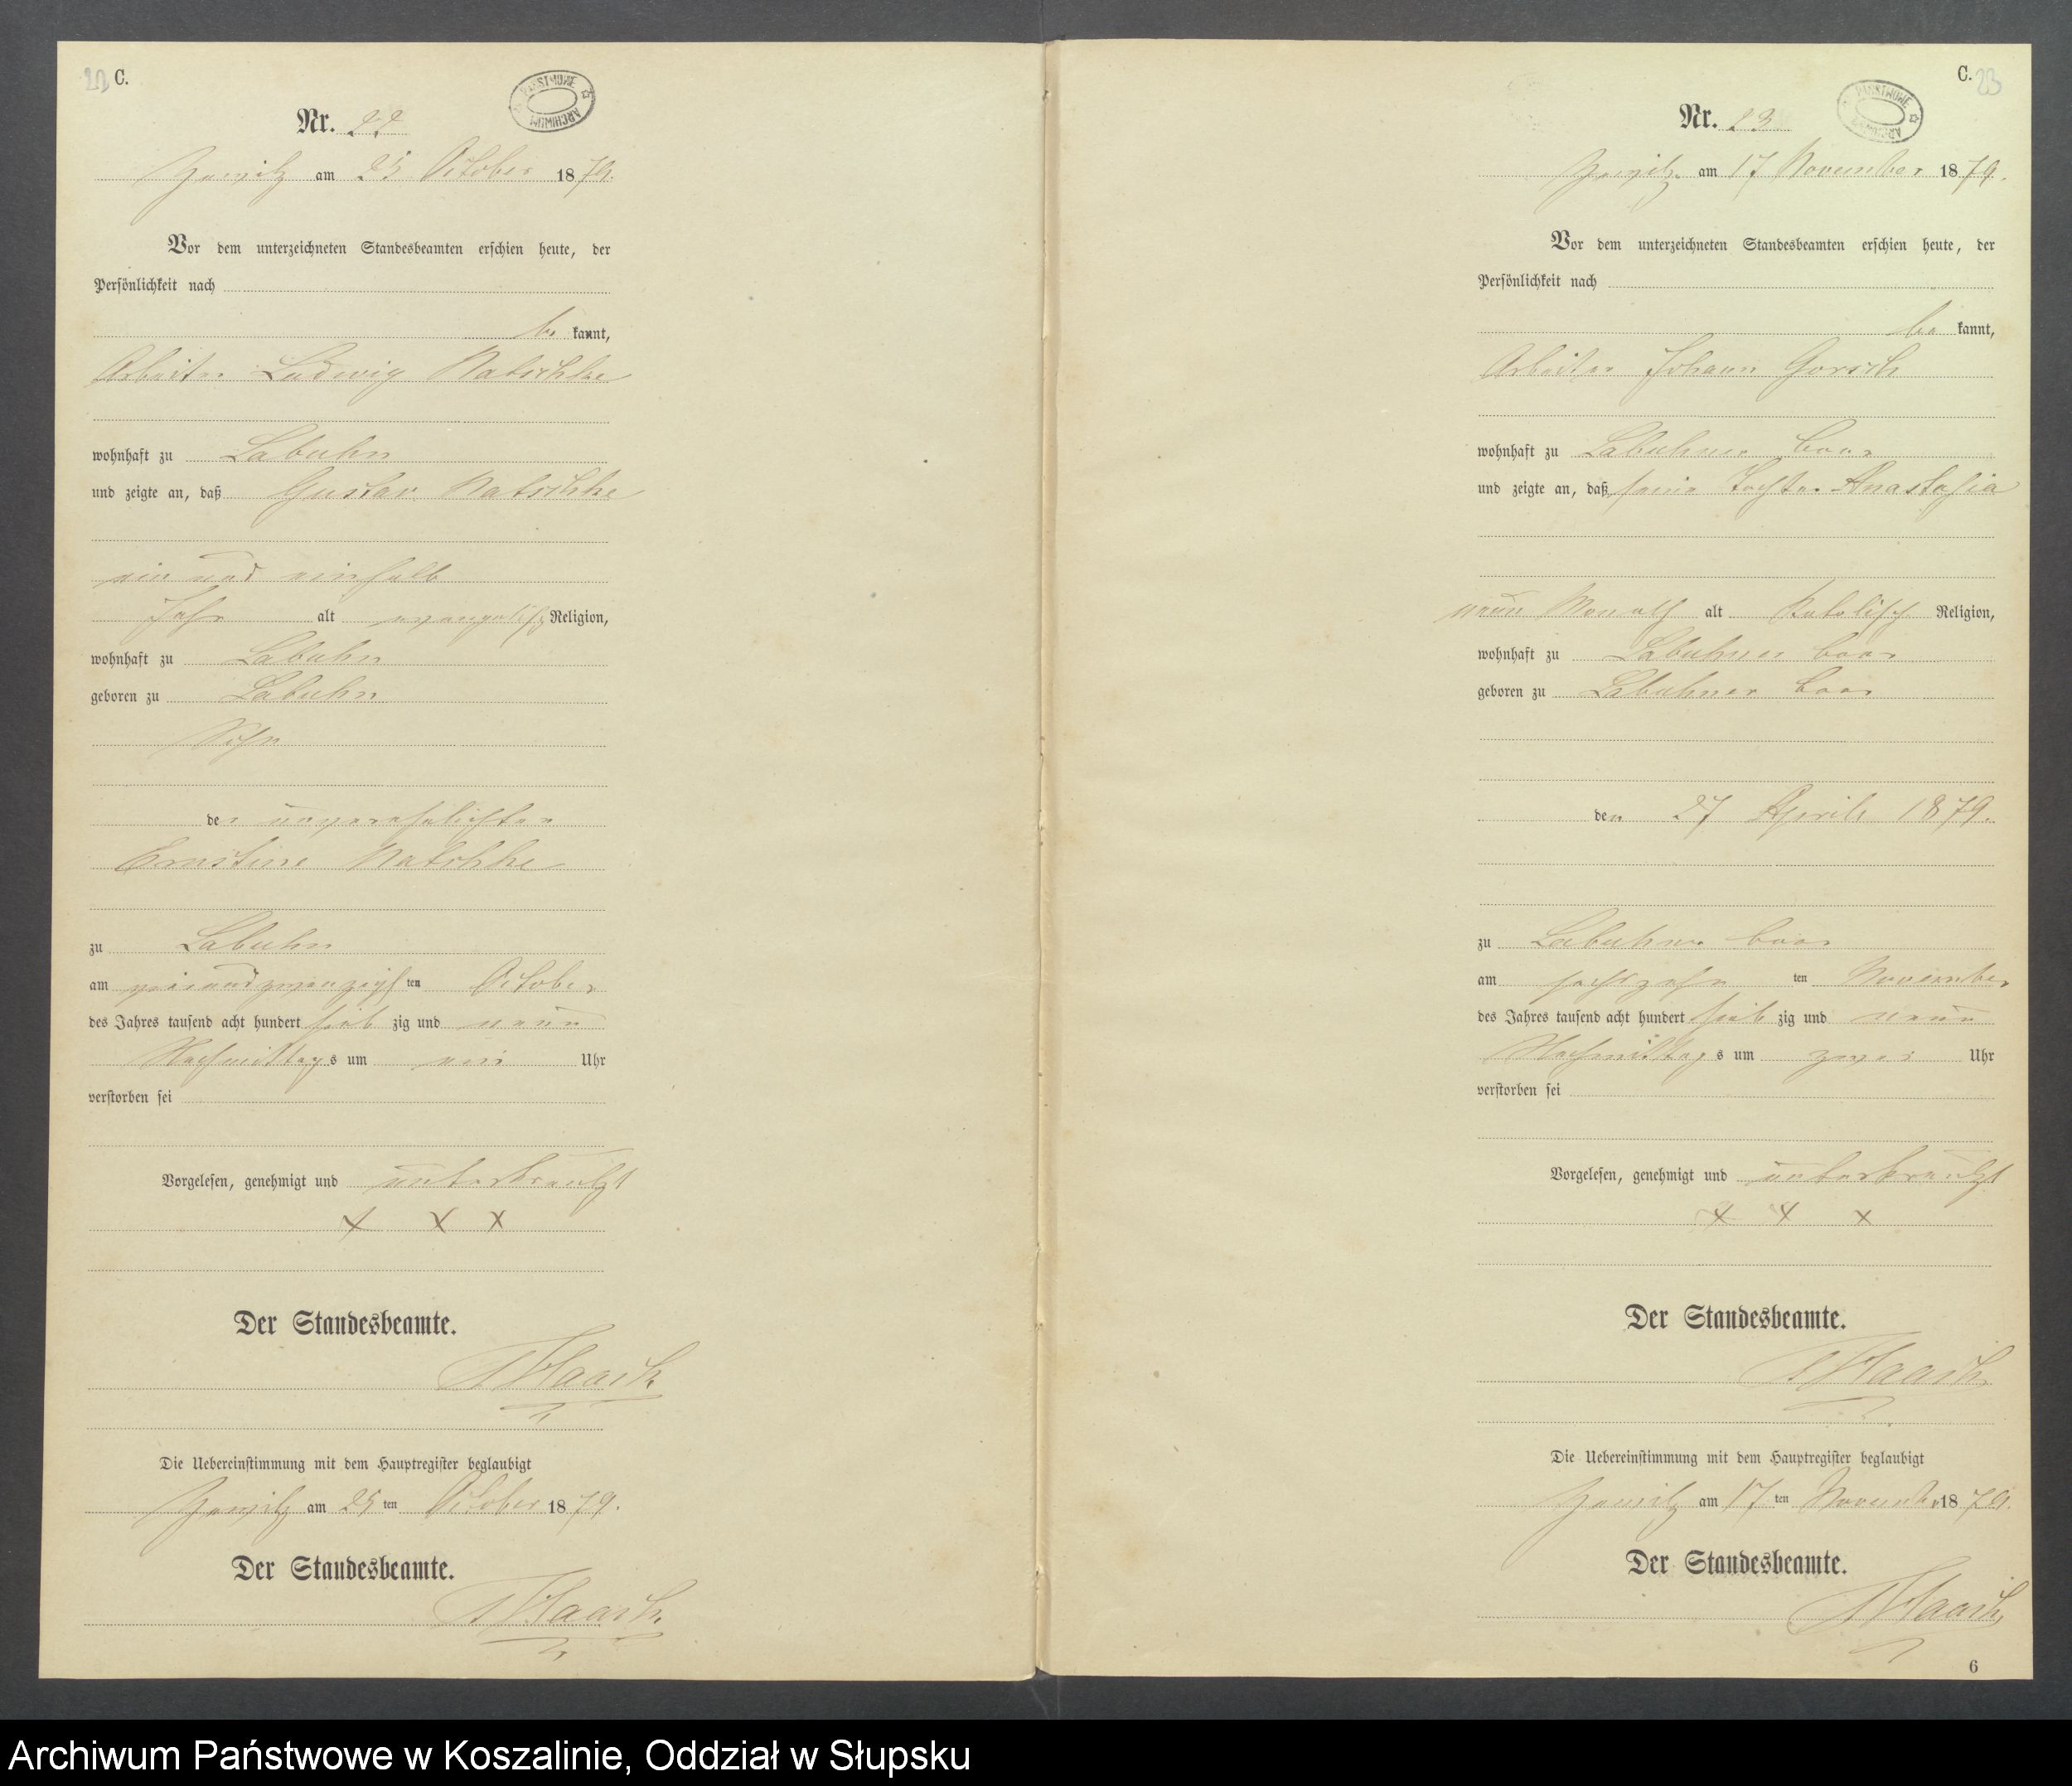 22 C.
PAŃSTWOWE ARCHIWUM
Nr. 22
am 25 October 1879.
Vor dem unterzeichneten Standesbeamten erschien heute, der
Persönlichkeit nach
be kannt,
Arbeiter Ludwig Natschke
wohnhaft zu Labuhn
und zeigte an, daß Gustav Natschke
ein und einhalb
Jahr alt evangelisch Religion,
wohnhaft zu Labuhn
geboren zu Labuhn
Sohn
der unverehelichten
Ernstine Natschke
zu Labuhn
am ten October
des Jahres tausend acht hundert sieb zig und neun
Nachmittags um ein Uhr
verstorben sei
Vorgelesen, genehmigt und unterkreutzt
x x x
Der Standesbeamte.
Die Uebereinstimmung mit dem Hauptregister beglaubigt
am 25 ten October 1879.
Der Standesbeamte.
C. 23
PAŃSTWOWE ARCHIWUM
Nr. 23
am 17 November 1879.
Vor dem unterzeichneten Standesbeamten erschien heute, der
Persönlichkeit nach
be kannt,
Arbeiter Johann Gorsch
wohnhaft zu Labuhner
und zeigte an, daß seine Tochter Anastasia
neun Monath alt Katolisch Religion,
wohnhaft zu Labuhner
geboren zu Labuhner
den 27 April 1879.
zu Labuhner
am sechszehn ten November
des Jahres tausend acht hundert sieb zig und neun
Nachmittags um zwei Uhr
verstorben sei
Vorgelesen, genehmigt und unterkreutzt
x x x
Der Standesbeamte.
Die Uebereinstimmung mit dem Hauptregister beglaubigt
am 17 ten November 1879.
Der Standesbeamte.
6
Archiwum Państwowe w Koszalinie, Oddział w Słupsku